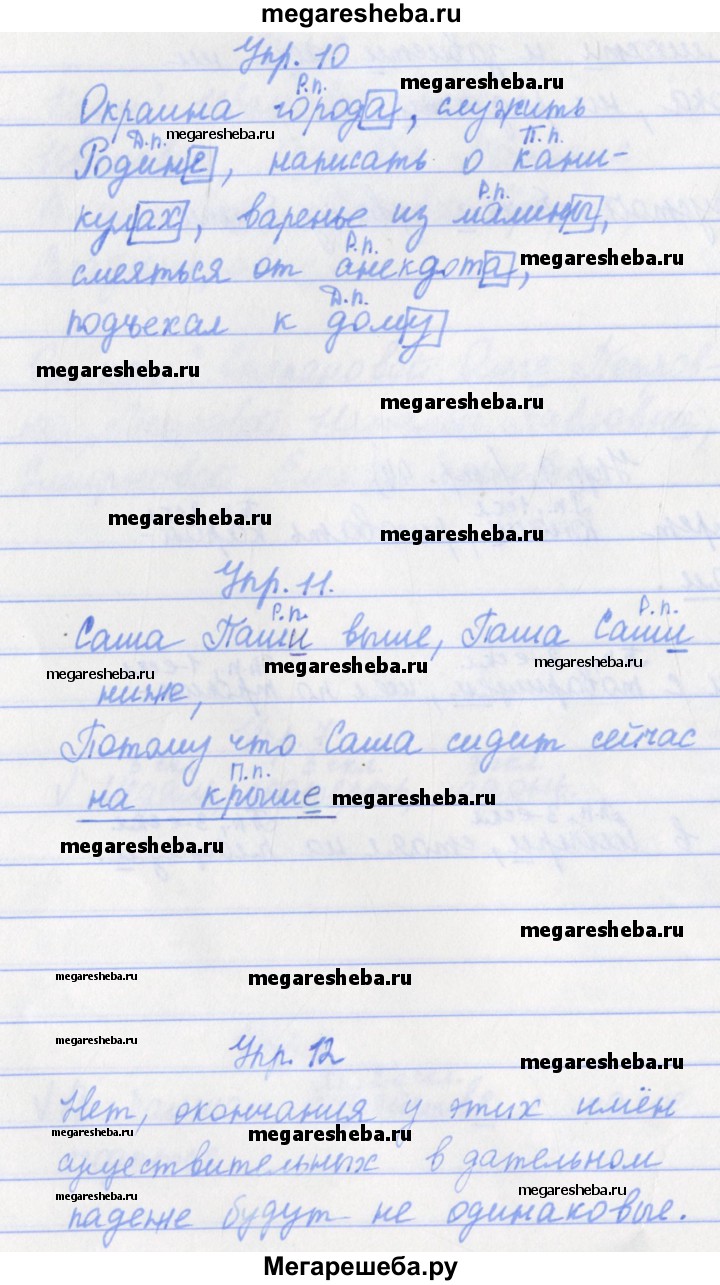 megaresheba.ru
Упр. 10
Р.п. megaresheba.ru
Окраина города, служить
Д.п. megaresheba.ru П.п.
Родине, написать о кани-
Р.п.
кулах, варенье из малины,
Р.п. megaresheba.ru
смеяться от анекдота,
Д.п.
подъехал к дому
megaresheba.ru
megaresheba.ru
megaresheba.ru
megaresheba.ru
Упр. 11.
Р.п. Р.п.
Саша Паши выше, Паша Саши
megaresheba.ru megaresheba.ru megaresheba.ru
ниже,
Потому что Саша сидит сейчас
П.п.
на крыше megaresheba.ru
megaresheba.ru
megaresheba.ru
megaresheba.ru megaresheba.ru
megaresheba.ru
Упр. 12 megaresheba.ru
Нет, окончания у этих имён
megaresheba.ru megaresheba.ru
существительных в дательном
megaresheba.ru megaresheba.ru
падеже будут не одинаковые.
Мегарешеба.ру